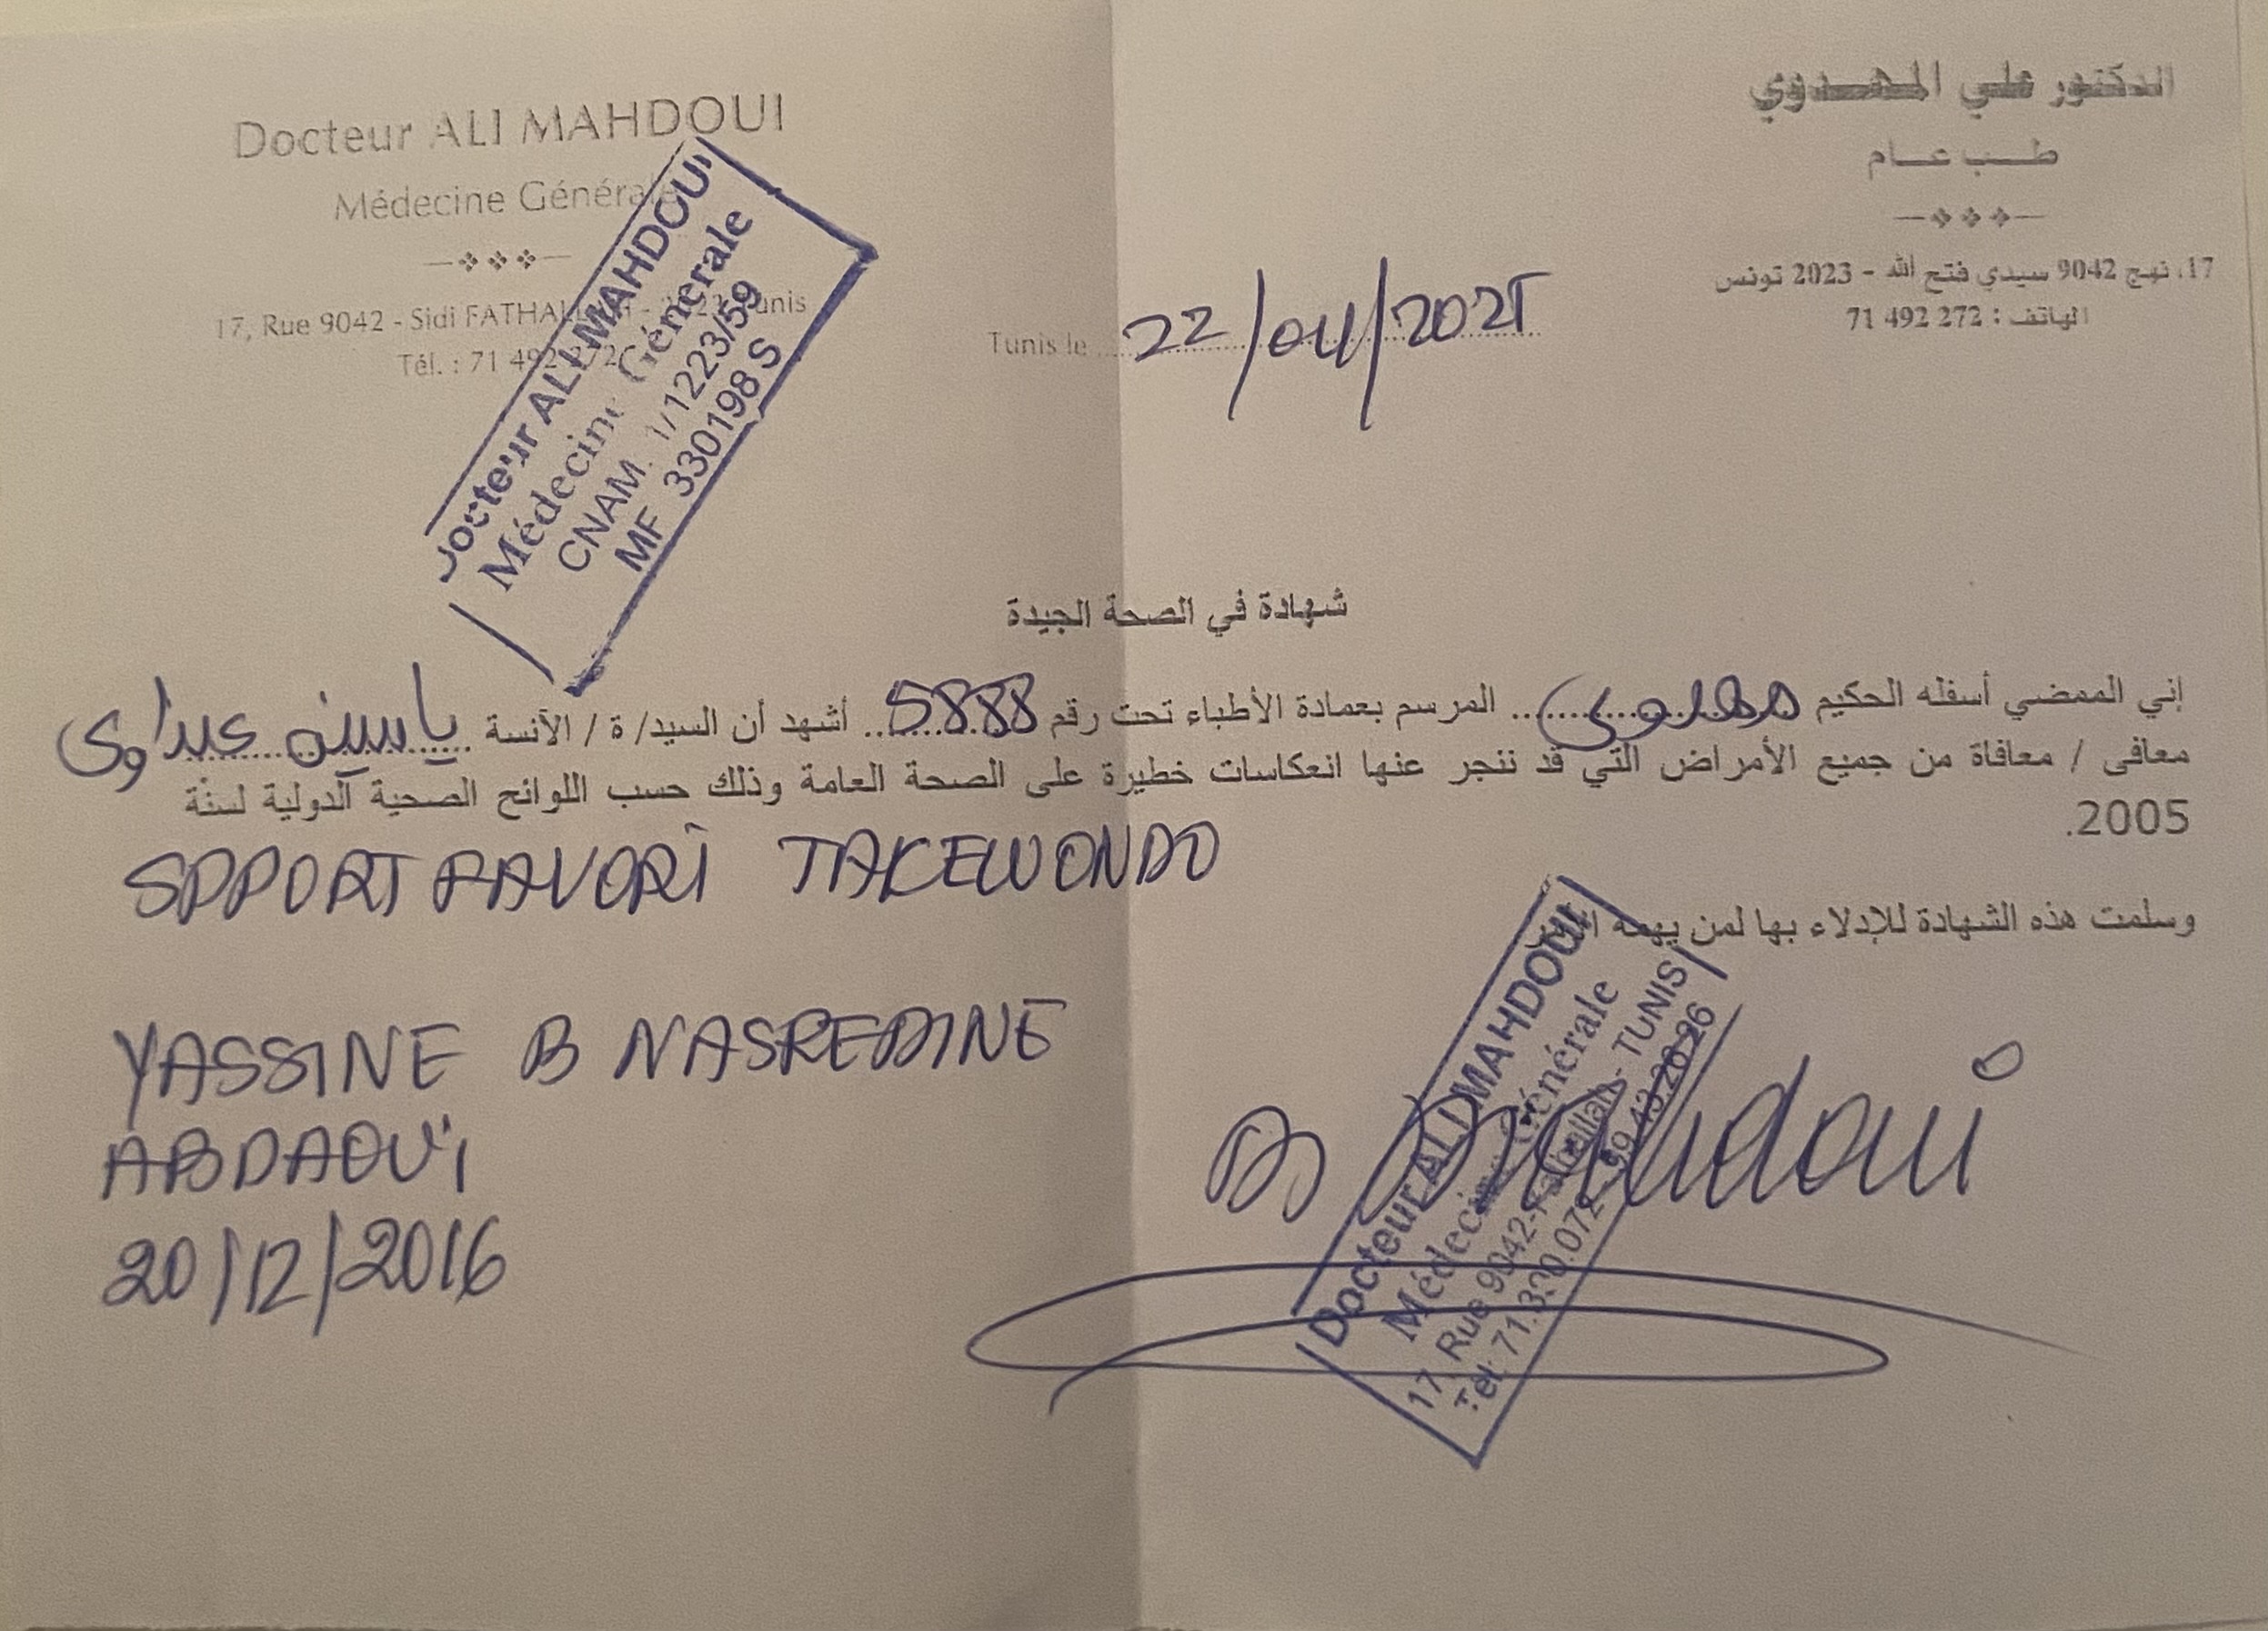 Docteur ALI MAHDOUI
Médecine Générale
17, Rue 9042 - Sidi FATHAL - Tunis
Tél. : 71 492 272
الدكتور علي المهدوي
طب عام
17، نهج 9042 سيدي فتح الله - 2023 تونس
الهاتف : 272 492 71
Docteur ALI MAHDOUI
Médecine Générale
CNAM. 1/1223/59
MF 330198 S
Tunis le 22/04/2025
شهادة في الصحة الجيدة
إني الممضي أسفله الحكيم مهدوي المرسم بعمادة الأطباء تحت رقم 5888 أشهد أن السيد/ ة / الآنسة ياسين عبداوي
معافى / معافاة من جميع الأمراض التي قد تنجر عنها انعكاسات خطيرة على الصحة العامة وذلك حسب اللوائح الصحية الدولية لسنة
2005.
SPPORT FAVORI TAKEWONDO
وسلمت هذه الشهادة للإدلاء بها لمن يهمه
YASSINE B NASREDINE
ABDAOUI
20/12/2016
Docteur ALI MAHDOUI
Médecine Générale
17, Rue 9042- Fathallah - TUNIS
Tel: 71.390.072 - 99.43.26.26
Dr Mahdoui